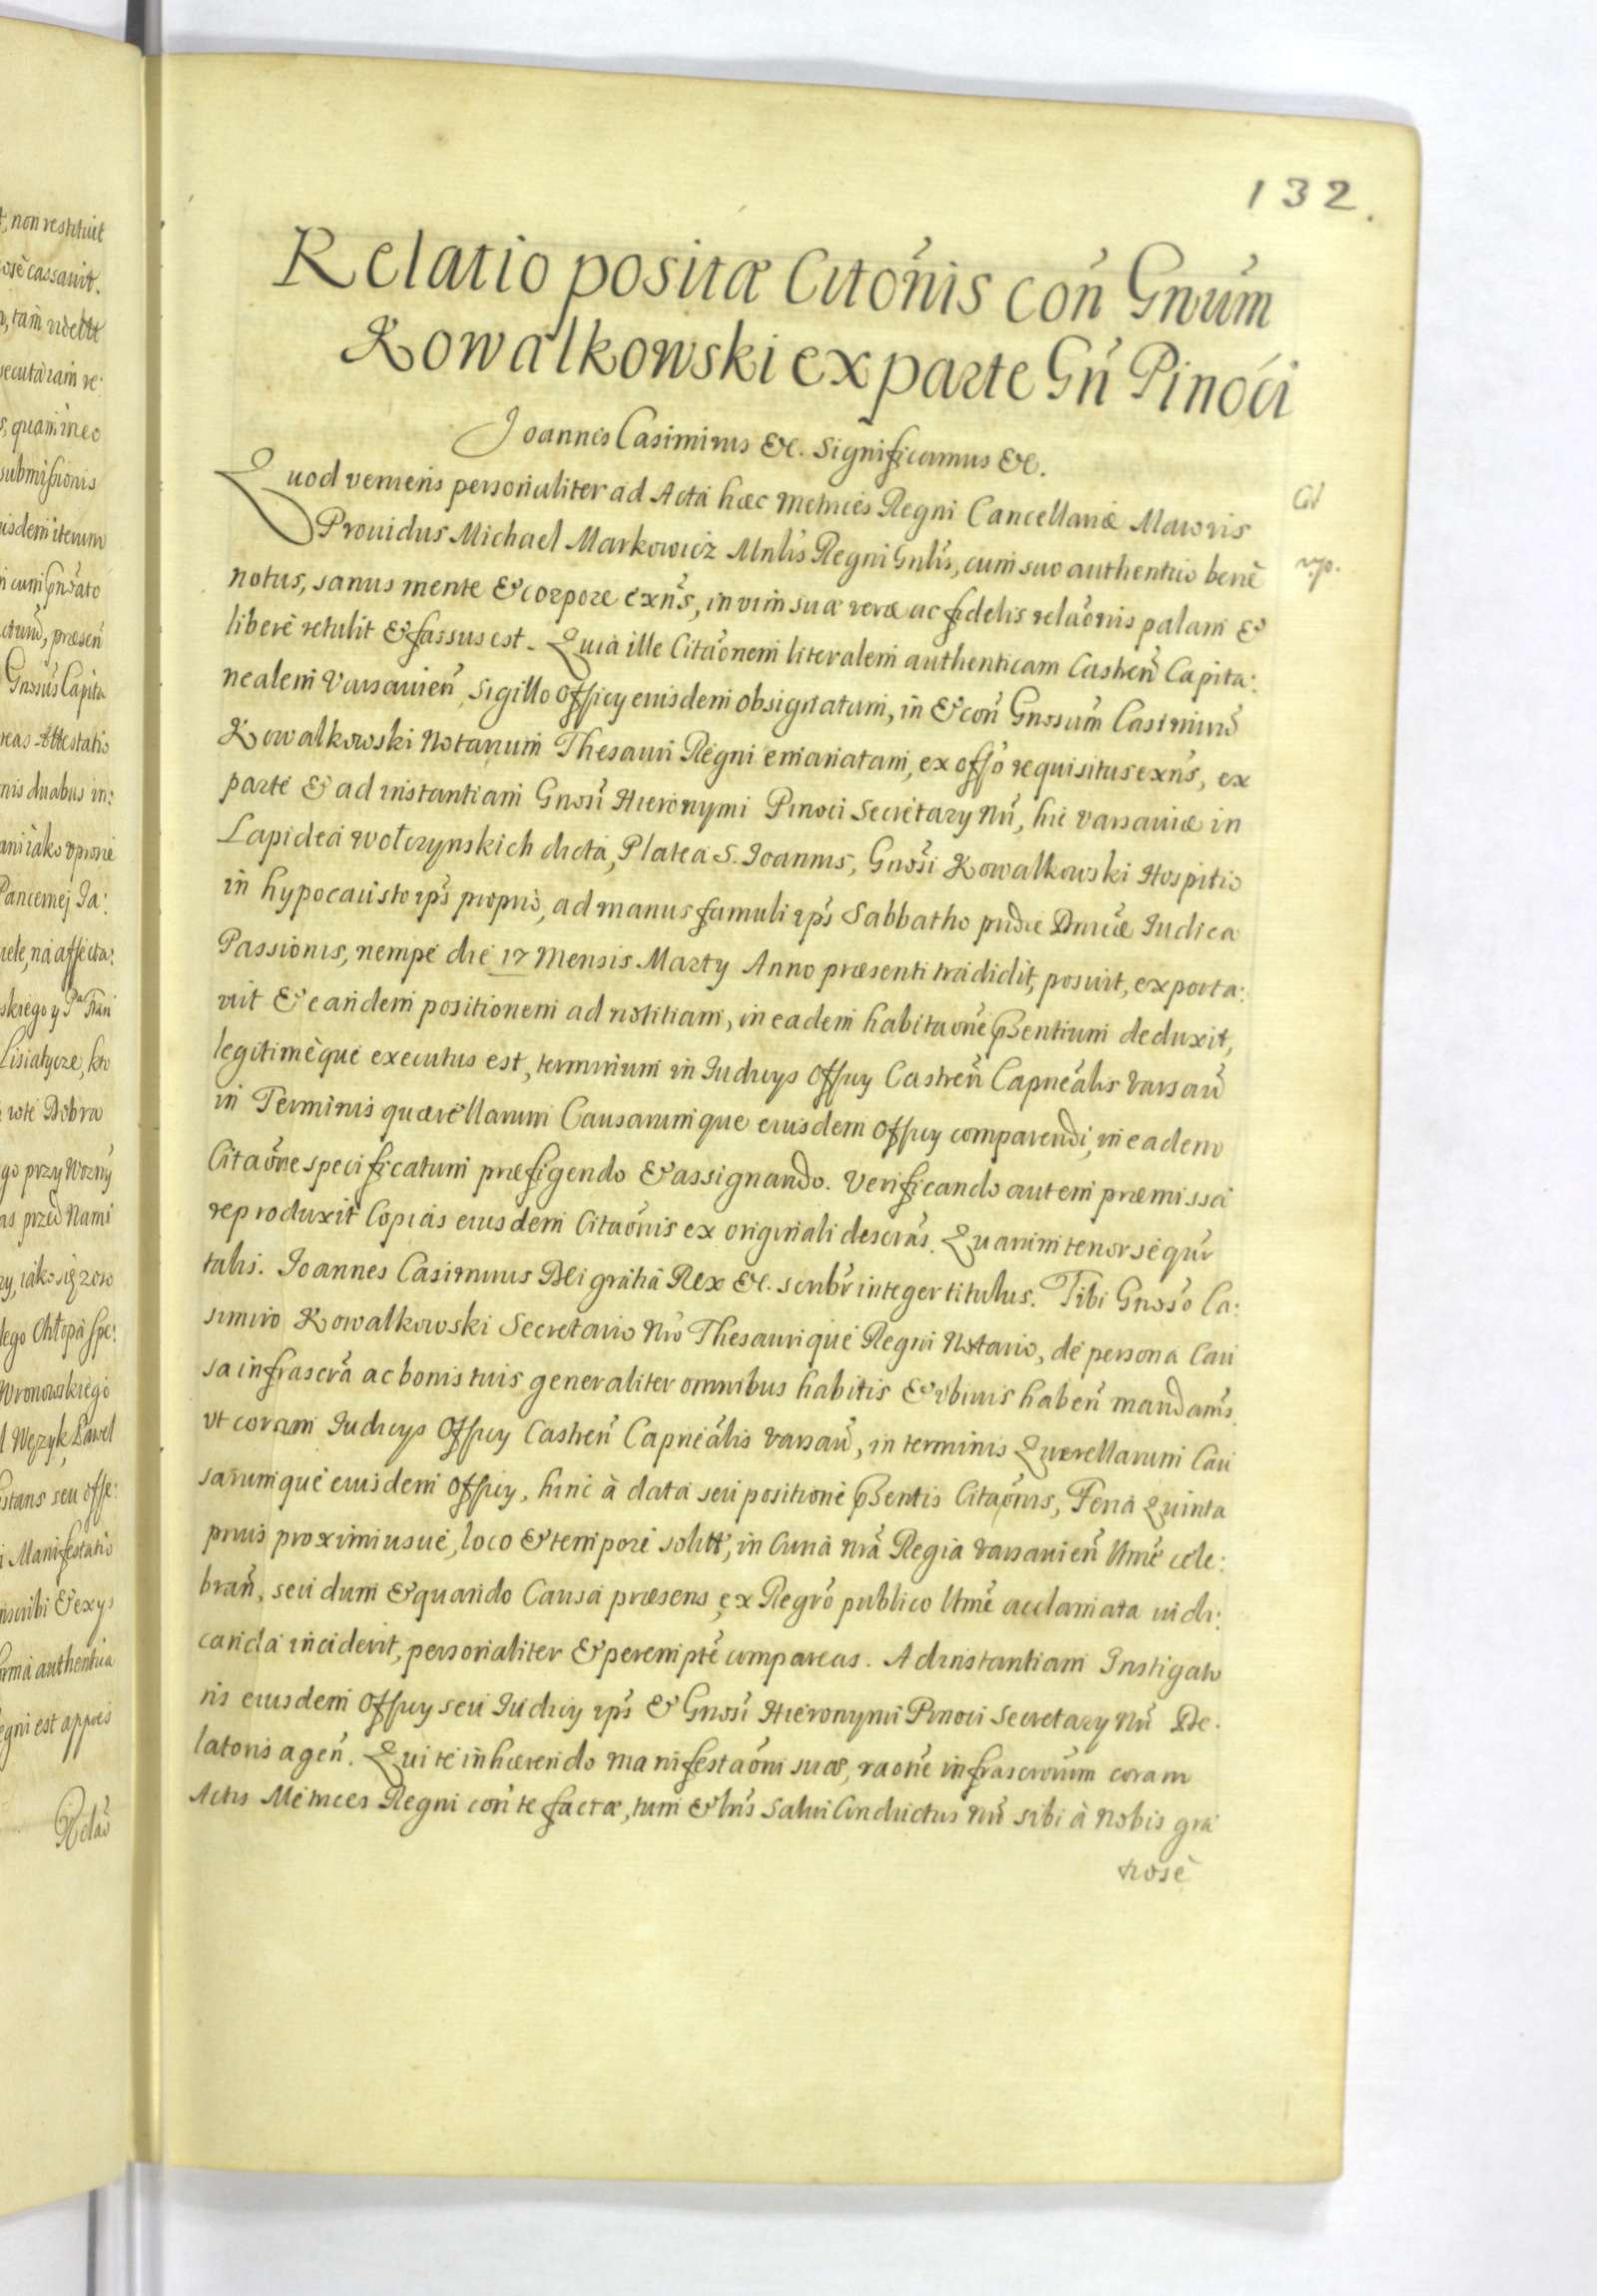 132.
Relatio positæ Citoñis coñ Gnum
Kowalkowski ex parte Gñ Pinoci
Joannes Casimirus &c. Significamus &c.
Quod veniens personaliter ad Acta hæc Metrices Regni Cancellariæ Maioris
Prouidus Michael Markowicz Mnlis Regni Gnlis, cum suo authentico benè
notus, sanus mente & corpore exñs, in vim suæ veræ ac fidelis relaõnis palam &
liberè retulit & fassus est. Quia ille Citaõnem literalem authenticam Castreñ Capita:
nealem Varsauieñ, Sigillo Officy eiusdem obsignatam, in & coñ Gnosum Casimirũ
Kowalkowski Notarium Thesauri Regni emanatam, ex offo requisitus exñs, ex
parte & ad instantiam Gnosi Hieronymi Pinoci Secretary Nri, hic Varsauiæ in
Lapidea Wołczynskich dicta, Platea S. Joannis, Gnosi Kowalkowski Hospitio
in hypocausto ips proprio, ad manus famuli ips Sabbatho pridie Dnicæ Iudica
Passionis, nempe die 17 Mensis Marty Anno præsenti tradidit, posuit, exporta:
uit & eandem positionem ad notitiam, in eadem habitaone psentium deduxit,
legitimèque executus est, terminum in Iudicys Officy Castreñ Capnealis Varsaũ
in Terminis quærellarum Causarumque eiusdem Officy comparendi, in eadem
Citaõne specificatum præfigendo & assignando. Verificando autem præmissa
reproduxit Copias eiusdem Citaõnis ex originali descrãs. Quarum tenor sequr
talis. Joannes Casimirus Dei gratia Rex &c. scribr integer titulus. Tibi Gnoso Ca:
simiro Kowalkowski Secretario Nro Thesaurique Regni Notario, de persona Cau
sa infrascrã ac bonis tuis generaliter omnibus habitis & vbiuis habeñ mandams
vt coram Iudicys Officy Castreñ Capnealis Varsaũ, in terminis Querellarum Cau
sarumque eiusdem Officy, hinc à data seu positione psentis Citaõnis, Feria Quinta
prius proximiusue, loco & tempore solitt, in Curia nrã Regia Varsauieñ Ume cele:
brañ, seu dum & quando Causa præsens, ex Regro publico Ume acclamata iudi:
canda inciderit, personaliter & perempte compareas. Ad instantiam Instigato
ris eiusdem Officy seu Iudicy ips & Gnosi Hieronymi Pinoci Secretary Nri De.
latoris ageñ. Qui te inhærendo manifestaõni suæ, raone infrascrorum coram
Actis Metrices Regni con te factæ, tum & lris Salui Conductus nri sibi à Nobis gra
tiosè